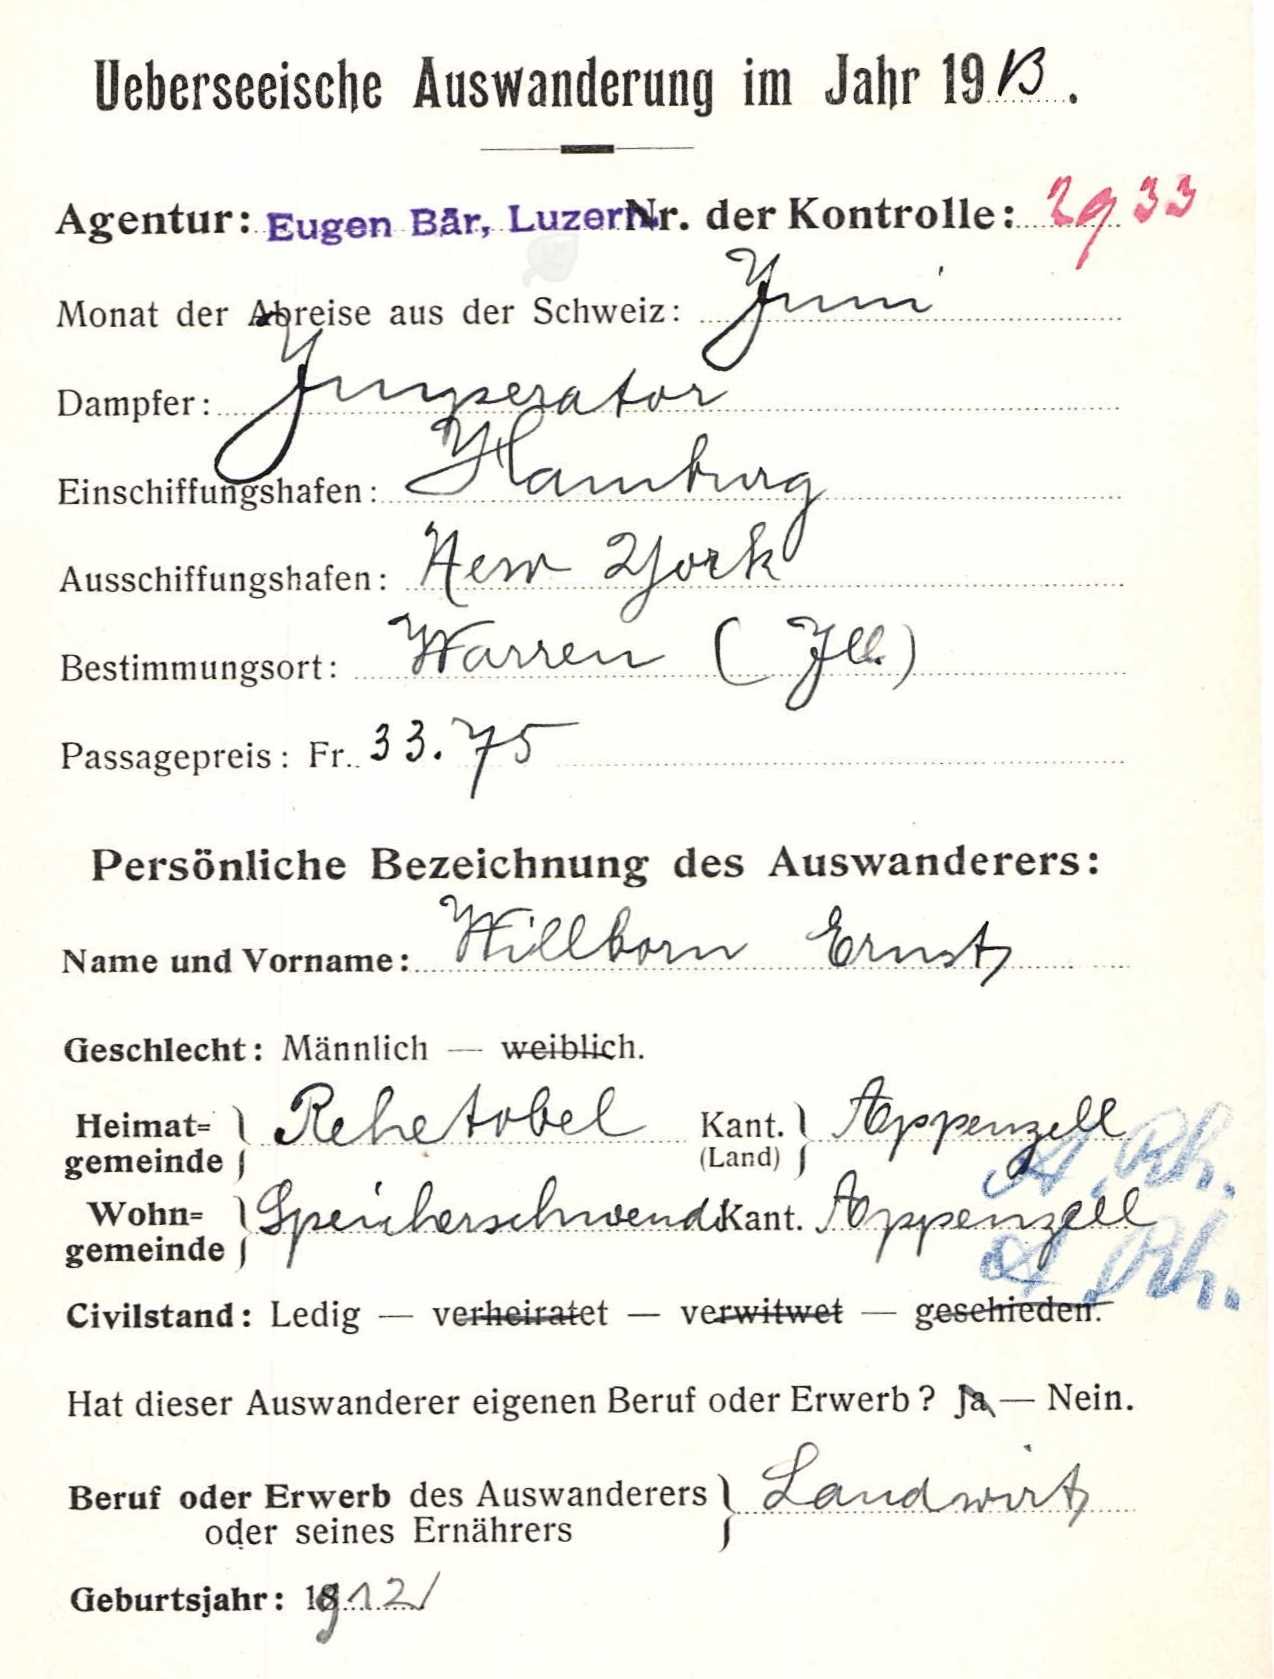 Ueberseeische Auswanderung im Jahr 1913.
Agentur: Eugen Bär, Luzern Nr. der Kontrolle: 2933
Monat der Abreise aus der Schweiz: Juni
Dampfer: Imperator
Einschiffungshafen: Hamburg
Ausschiffungshafen: New York
Bestimmungsort: Warren (Ill.)
Passagepreis: Fr. 33.75
Persönliche Bezeichnung des Auswanderers:
Name und Vorname: Willborn Ernst
Geschlecht: Männlich — weiblich.
Heimat= gemeinde } Rehetobel Kant. (Land) } Appenzell
A. Rh.
Wohn= gemeinde } Speicherschwendi Kant. Appenzell
A. Rh.
Civilstand: Ledig — verheiratet — verwitwet — geschieden.
Hat dieser Auswanderer eigenen Beruf oder Erwerb? Ja — Nein.
Beruf oder Erwerb des Auswanderers } Landwirt
oder seines Ernährers
Geburtsjahr: 1912